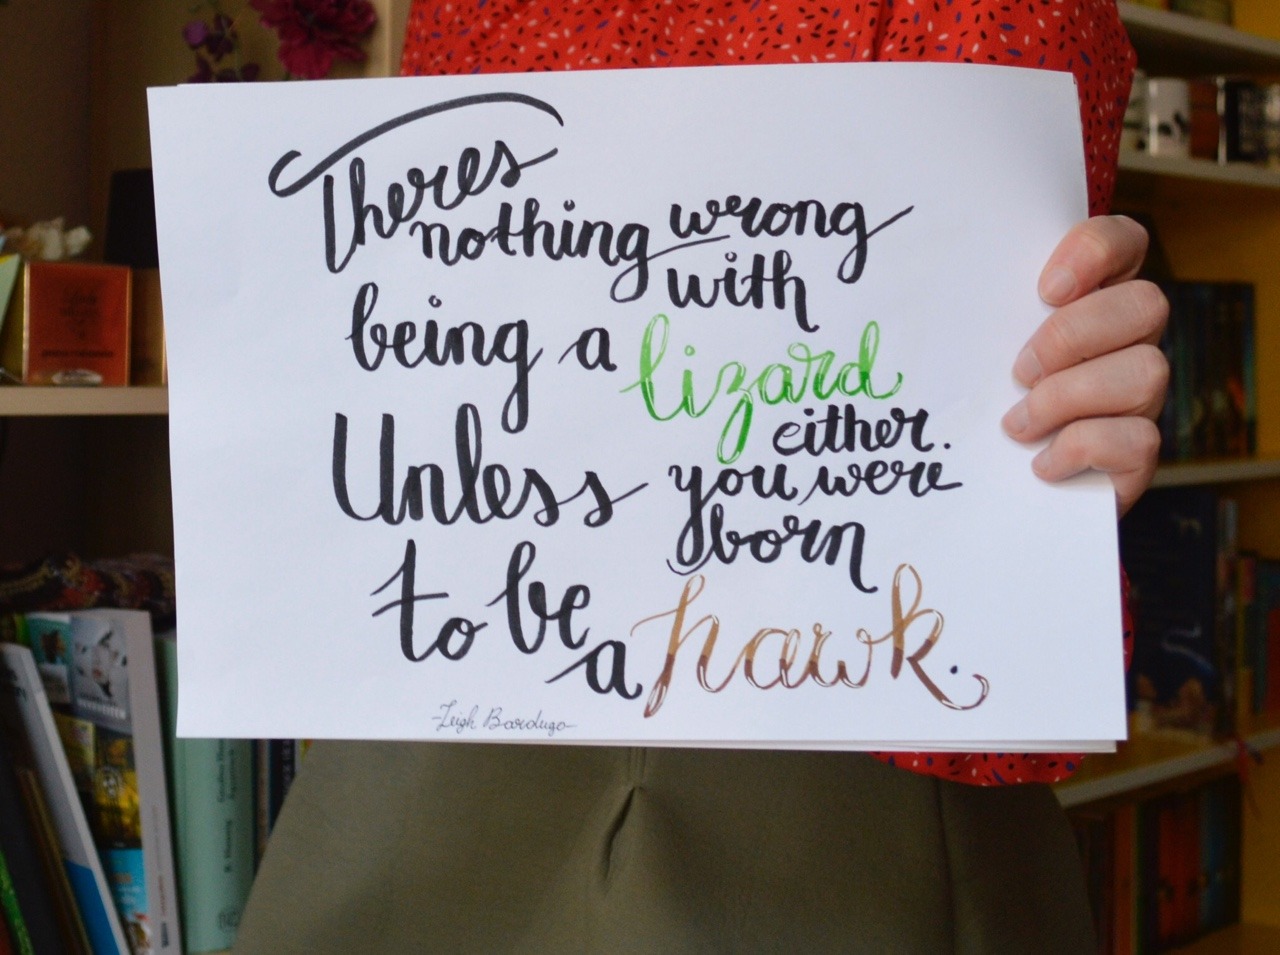 Theres
nothing wrong
with
being a lizard
either.
Unless you were
born
to be
a hawk.
-Leigh Bardugo